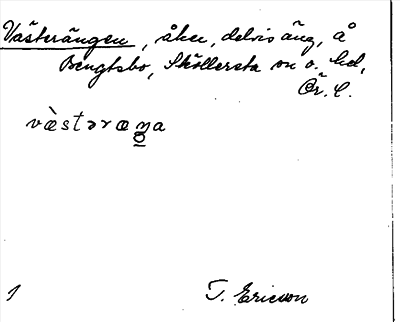 Västerängen, åker, delvis äng, å
Bengtsbo, Sköllersta sn o. hd,
Ör. l.
væ̀stəræŋa
1 T. Ericson